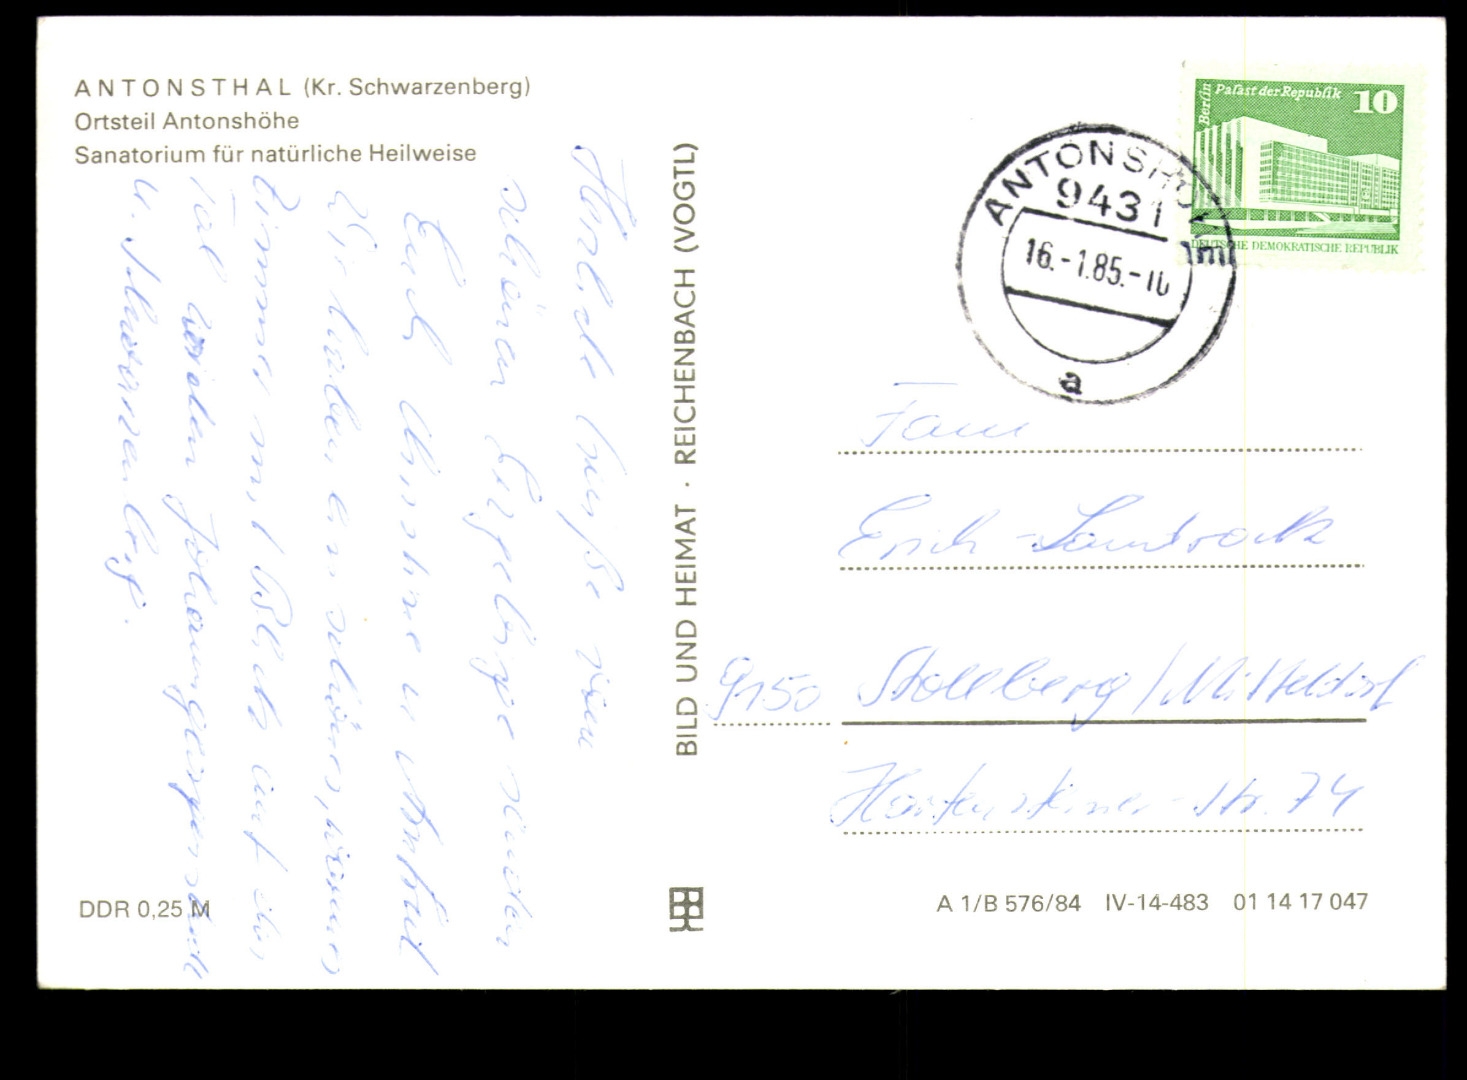 ANTONSTHAL (Kr. Schwarzenberg)
Ortsteil Antonshöhe
Sanatorium für natürliche Heilweise
Herzliche Grüße vom
schönen Erzgebirge senden
Euch Christine u.
Wir haben ein schönes, warmes
Zimmer mit Blick auf das
Tal Johanngeorgenstadt
u. Schwarzenberg.
DDR 0,25 M
BILD UND HEIMAT · REICHENBACH (VOGTL)
Berlin Palast der Republik 10
DEUTSCHE DEMOKRATISCHE REPUBLIK
ANTONSHÖHE
9431
16.-1.85.-10
a
Fam
Erich Landrock
9150 Stollberg/Mitteldorf
Hartensteiner-Str. 74
A 1/B 576/84 IV-14-483 01 14 17 047